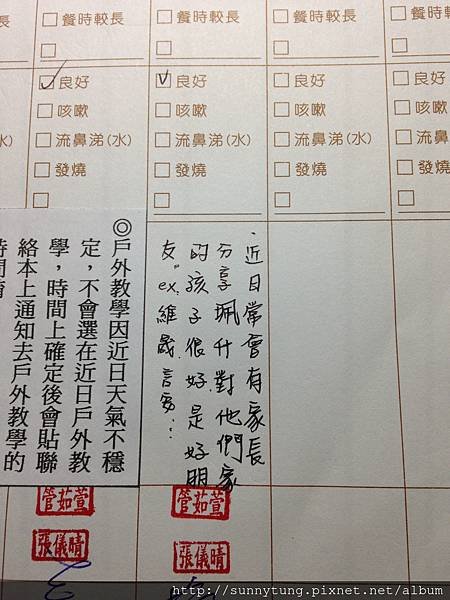 餐時較長 餐時較長 餐時較長 餐時較長
良好 良好 良好 良好
咳嗽 咳嗽 咳嗽 咳嗽
流鼻涕(水) 流鼻涕(水) 流鼻涕(水) 流鼻涕(水)
發燒 發燒 發燒 發燒
·近日常會有家長
分享珮什對他們家
的孩子很好是好朋
友"ex.維晟、言安…
◎戶外教學因近日天氣不穩
定，不會選在近日戶外教
學，時間上確定後會貼聯
絡本上通知去戶外教學的
管茹萱 管茹萱
張儀晴 張儀晴
http://sunnytung.pixnet.net/album